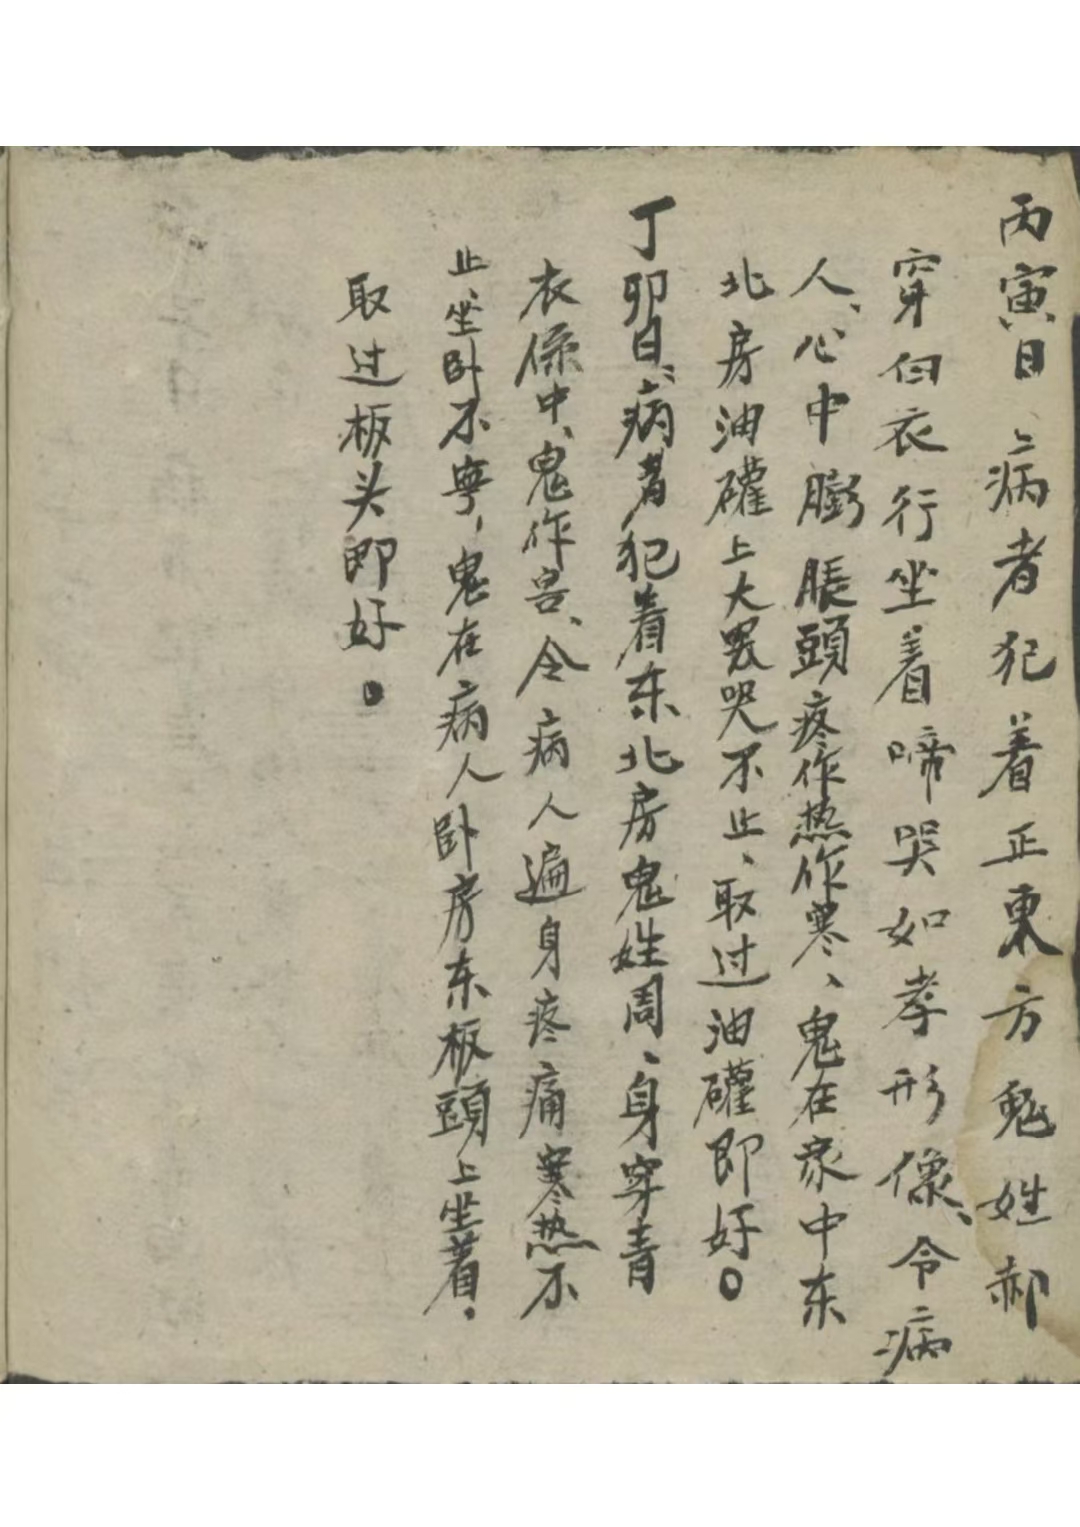 丙寅日、病者犯着正東方鬼姓郝
穿白衣行坐着啼哭如孝形像、令病
人、心中膨脹頭疼作热作寒、鬼在家中东
北房油礶上大哭不止、取过油礶即好。
丁卯日、病者犯着东北房鬼姓周、身穿青
衣係中、鬼作害、令病人遍身疼痛寒热不
止、坐卧不寧，鬼在病人卧房东板頭上坐着，
取过板头即好。